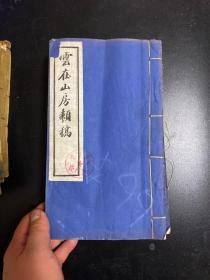 雲在山房類稿